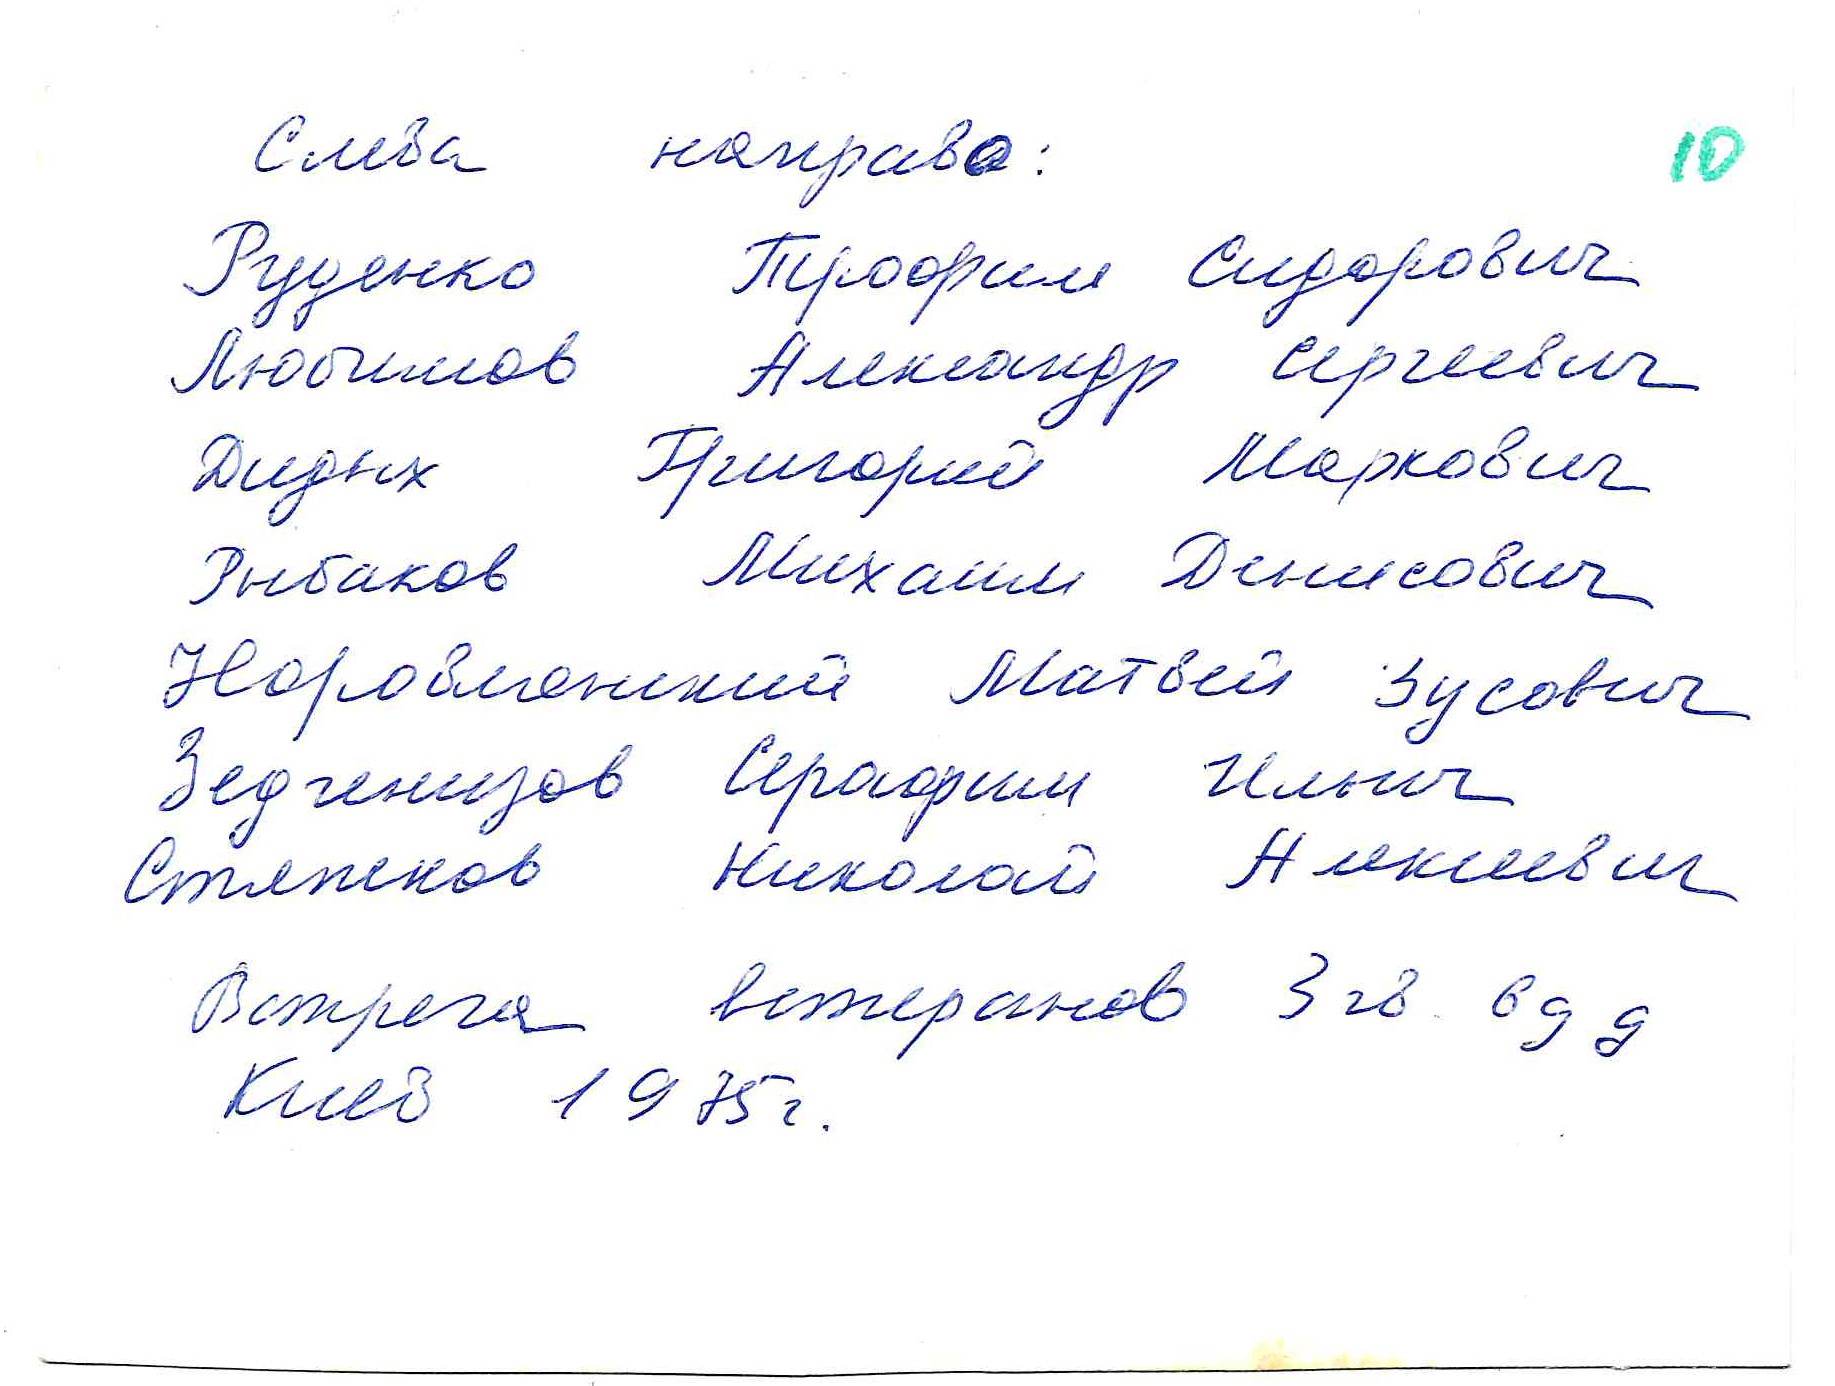 Слева направо: 10
Руденко Трофим Сидорович
Любимов Александр Сергеевич
Дидых Григорий Маркович
Рыбаков Михаил Денисович
Норовлянский Матвей Зусович
Зедгенизов Серафим Ильич
Степенков Николай Алексеевич
Встреча ветеранов 3 гв. вдд
Киев 1975 г.